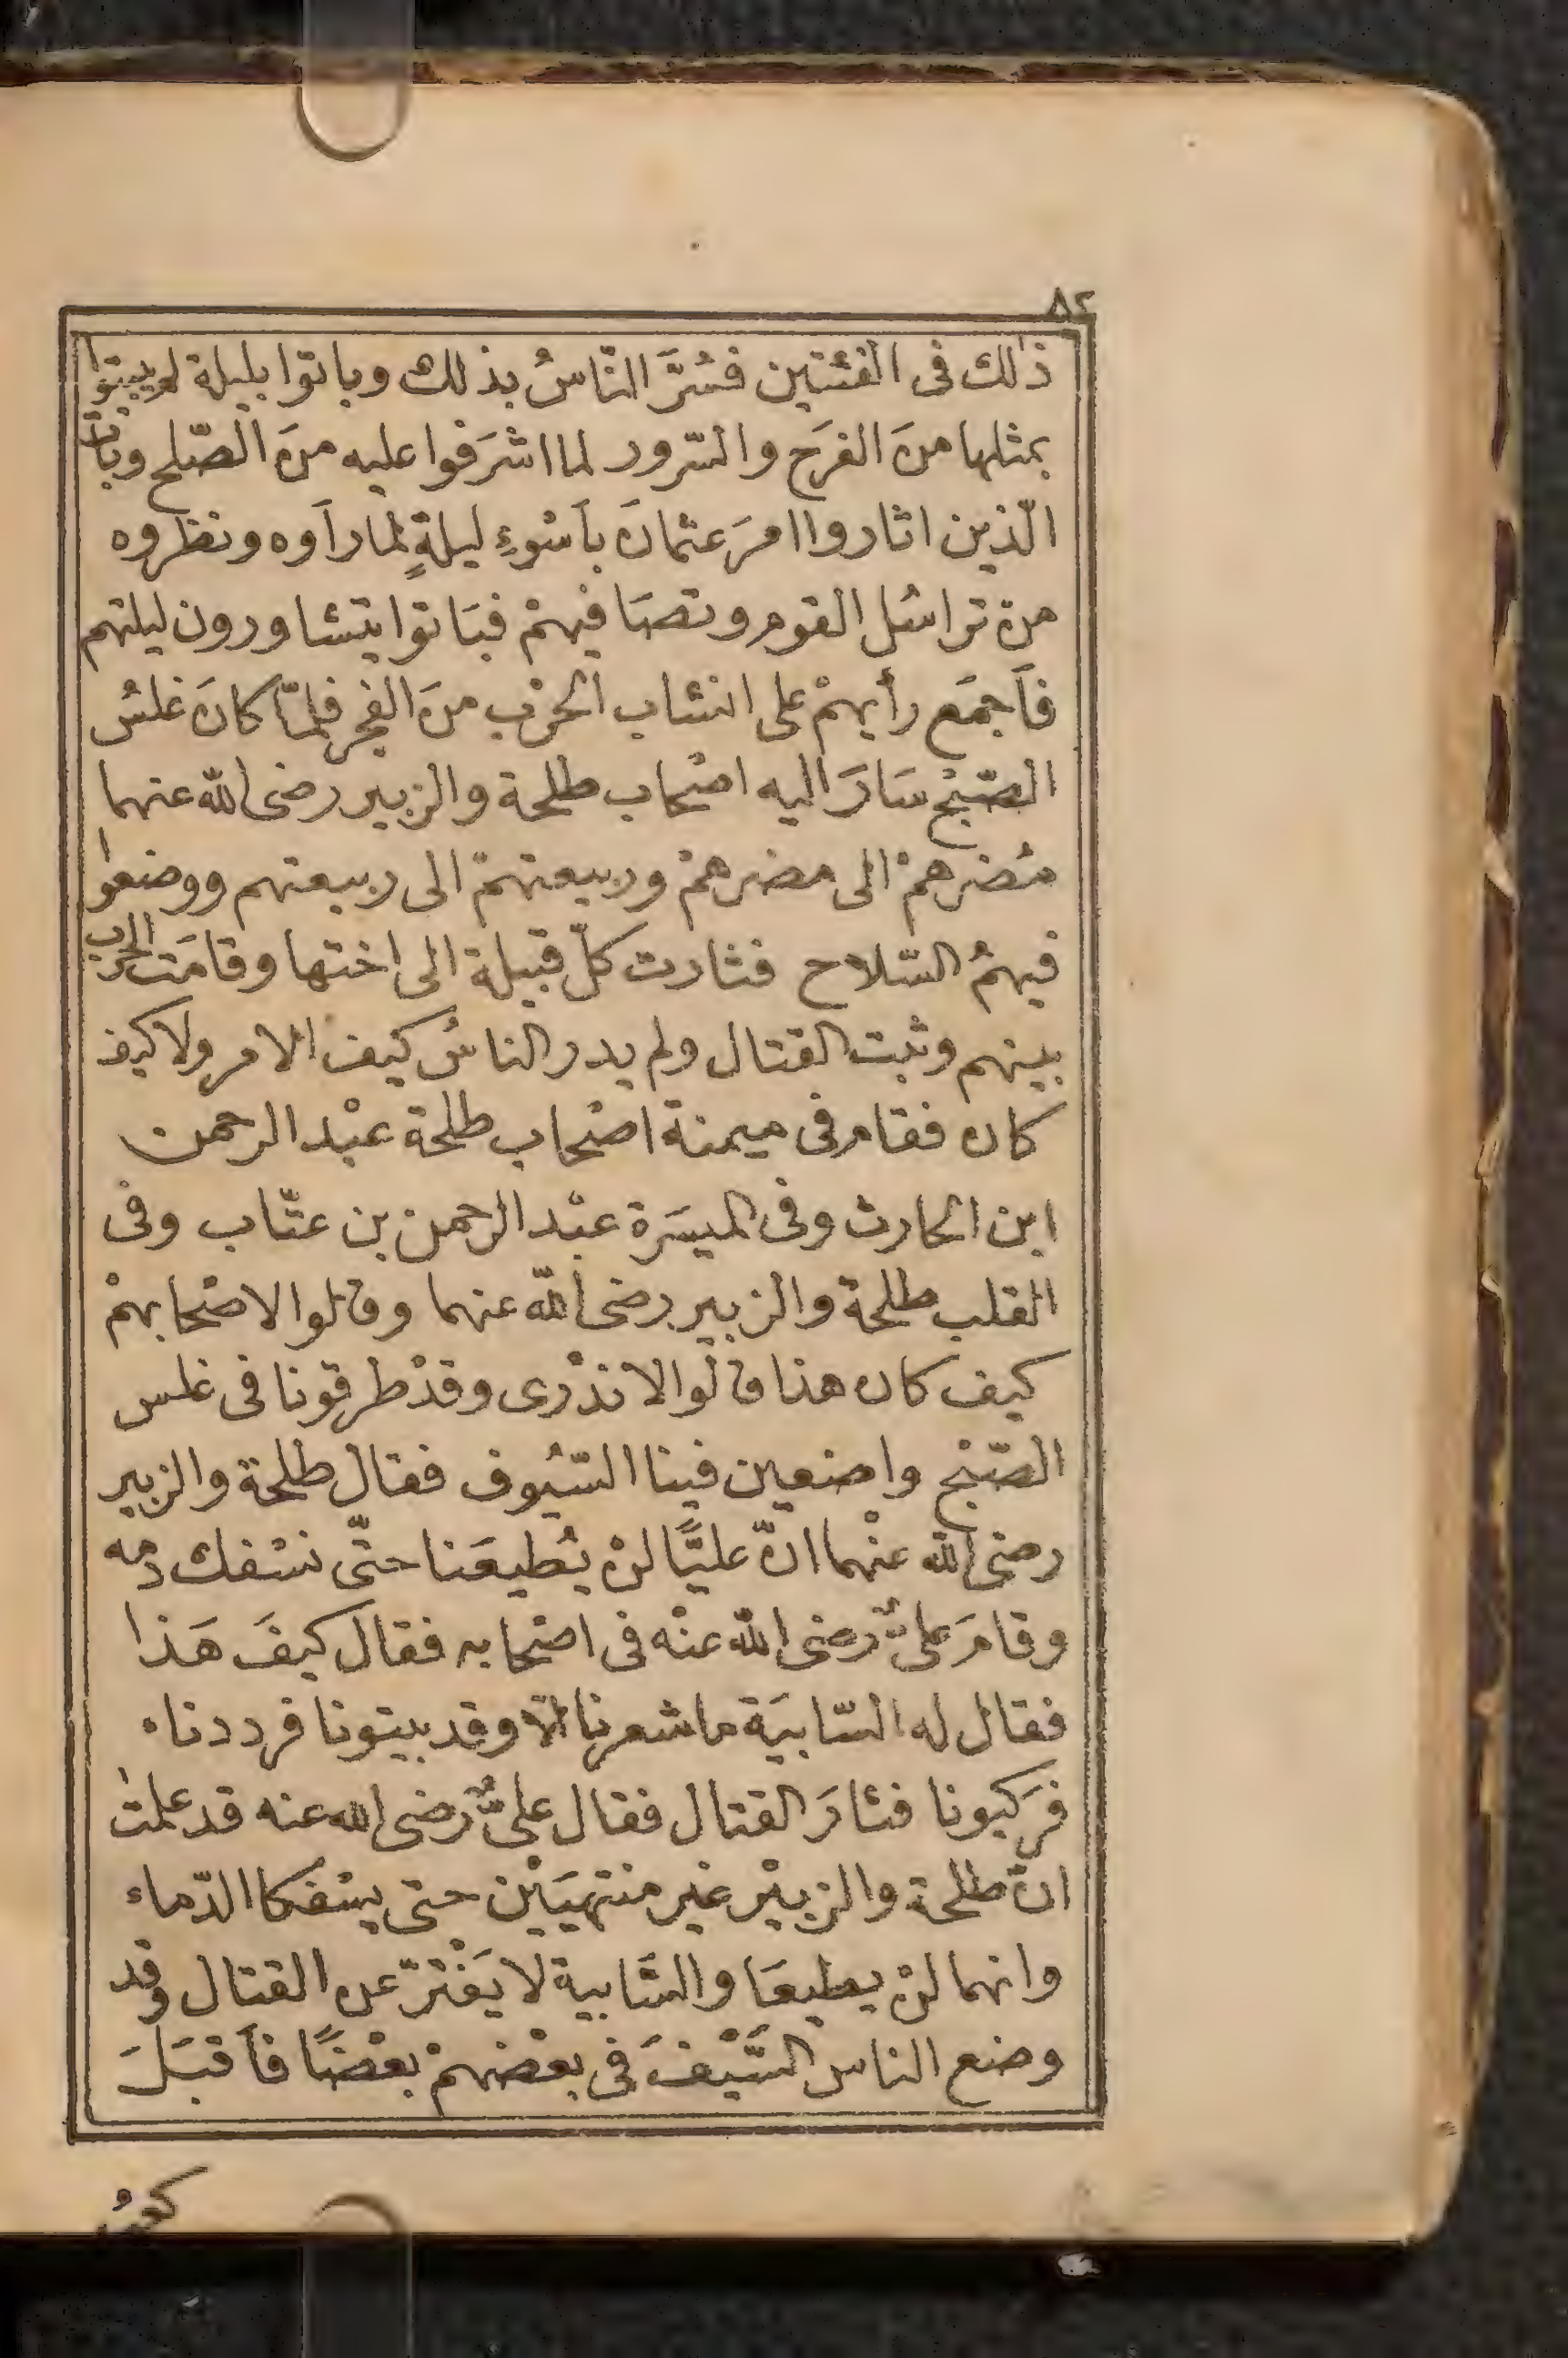 ٨٢
ذٰلك فى الفئتين فسُرَّ النّاسُ بذلك وباتوا بليلة لم يبيتوا
بمثلها منَ الفرَح والسّرور لما اشرَفوا عليه منَ الصّلح وبات
الّذين اثاروا امرَ عثمانَ بأسْوءِ ليلةٍ لما رأوه ونظروه
من تراسُل القوم وتصَافيهمْ فبَاتوا يتشاورون ليلتهم
فأجمَع رأيهمْ على انشاب الحرْب منَ الفجر فلمّا كانَ غلسُ
الصّبْح سَارَ اليه اصْحاب طلحة والزبير رضى الله عنهما
مُضرهمْ الى مضرهمْ وربيعتهمْ الى ربيعتهم ووضعوا
فيهمُ السّلاح فثارت كلّ قبيلة الى اختها وقامَت الحرب
بينهم وثبت القتال ولم يدر الناسُ كيف الامر ولا كيف
كان فقام فى ميمنة اصْحاب طلحة عبْد الرحمن
ابن الحارث وفى الميسَرة عبْد الرحمن بن عتّاب وفى
القلب طلحة والزبير رضى الله عنهما وقالوا لاصْحابهمْ
كيف كان هذا قالوا لا ندْرى وقدْ طرقونا فى غلس
الصّبْح واضعين فينا السّيُوف فقال طلحة والزبير
رضى الله عنْهما انّ عليًّا لنْ يُطيعَنا حتّى نسْفك دمه
وقامَ علىٌّ رضى الله عنْه فى اصْحابه فقال كيفَ هَذا
فقال له السّابيَة ما شعرنا الّا وقد بيتونا فرددناه
فرَكبونا فثارَ القتال فقال علىٌّ رضى الله عنه قد علمتُ
انّ طلحة والزبيْر غير منتهيَيْن حتى يسْفكا الدّماء
وانهما لنْ يطيعَا والسَّابية لا يَفْترّ عن القتال وقد
وضع الناس السَّيْفَ فى بعْضهمْ بعْضًا فأقبَلَ
كعبُ